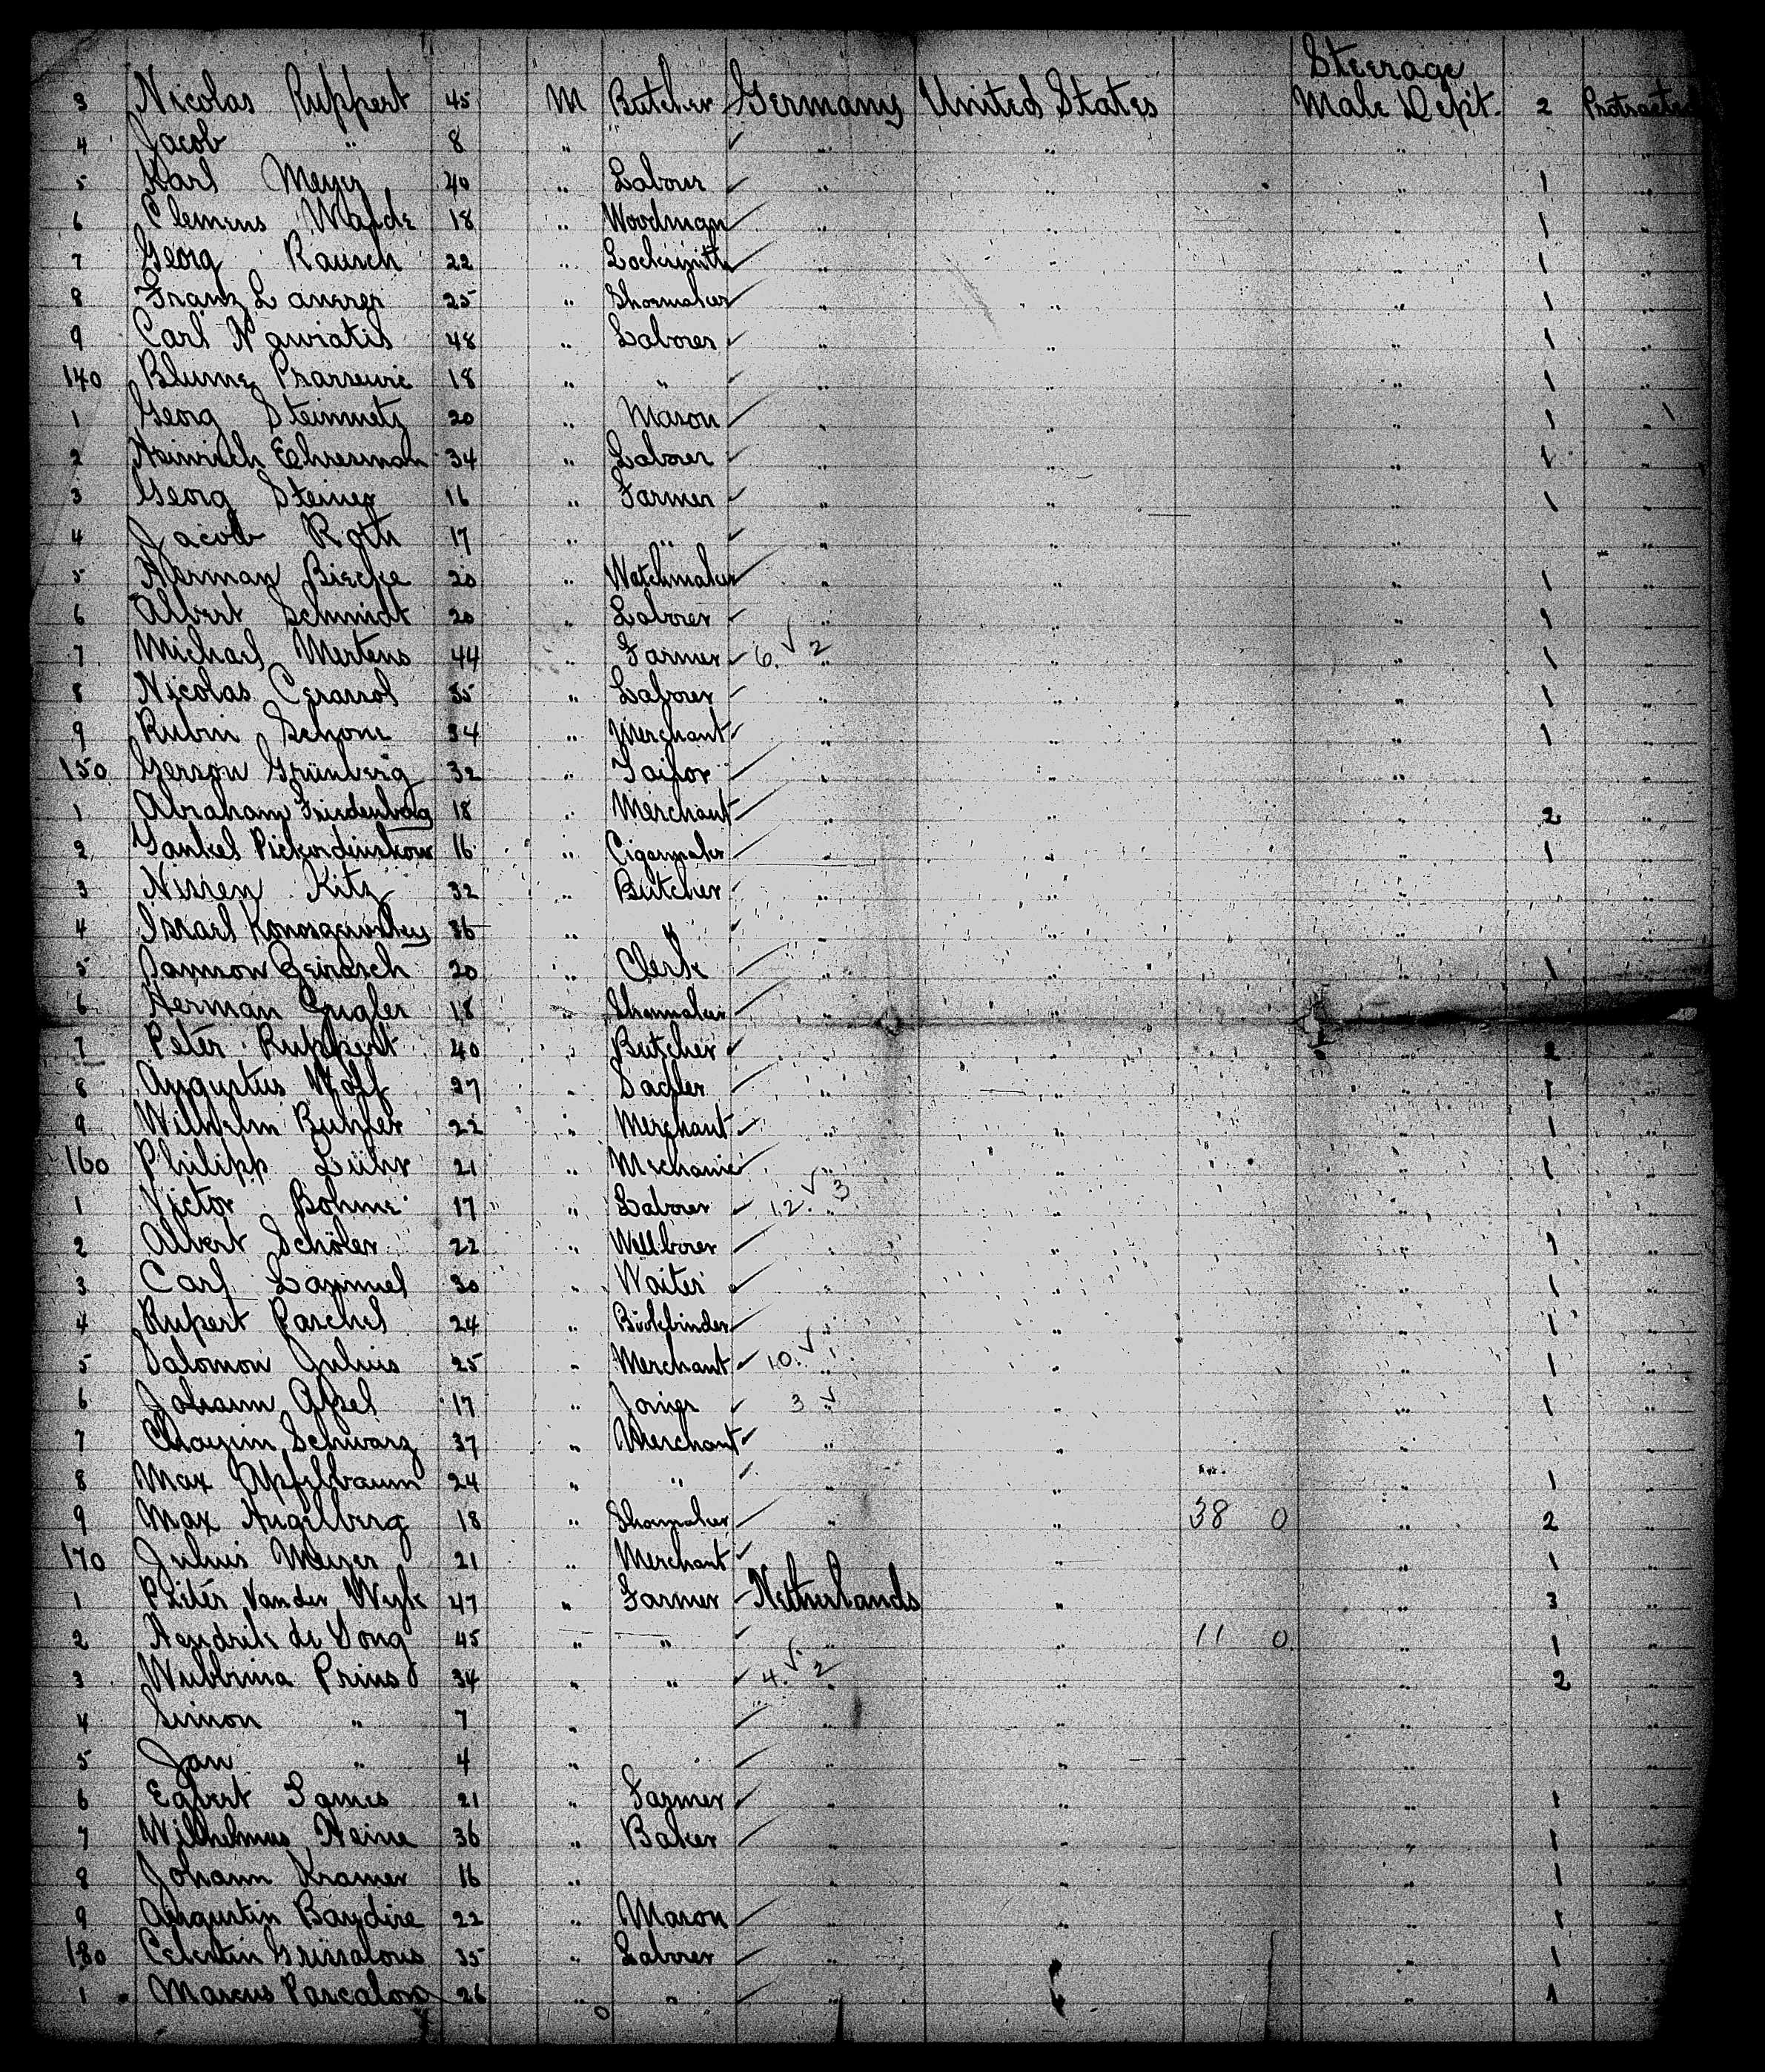 Steerage
3 Nicolas Ruppert 45 M Butcher Germany United States Male Dept. 2 Protracted
4 Jacob " 8 " " " " "
5 Karl Meyer 40 " Labour " " " 1 "
6 Clemens Walde 18 " Woodman " " " 1 "
7 Georg Rausch 22 " Locksmith " " " 1 "
8 Franz Lauerer 25 " Shoemaker " " " 1 "
9 Carl Nawiatis 48 " Laborer " " " 1 "
140 Blume 18 " " " " " 1 "
1 Georg Steinmetz 20 " Mason " " " 1 "
2 Heinrich Ehrerman 34 " Laborer " " " 1 "
3 Georg Steiner 16 " Farmer " " " 1 "
4 Jacob Roth 17 " " " " " "
5 Herman Biecke 20 " Watchmaker " " " 1 "
6 Albert Schmidt 20 " Laborer " " " 1 "
7 Michael Mertens 44 " Farmer 6. √ 2 " " " 1 "
8 Nicolas 35 " Laborer " " " 1 "
9 Rubin Schone 34 " Merchant " " " 1 "
150 Gerson Grünberg 32 " Tailor " " " "
1 Abraham Friedenberg 18 " Merchant " " " 2 "
2 Yankel 16 " Cigarmaker " " " 1 "
3 Nissen Kitz 32 " Butcher " " " "
4 Israel 36 " " " " " "
5 20 " Clerk " " " 1 "
6 Herman Gugler 18 " Shoemaker " " " "
7 Peter Ruppert 40 " Butcher " " " 2 "
8 Augustus Wolf 27 " Sadler " " " 1 "
9 Wilhelm Buhler 22 " Merchant " " " 1 "
160 Philipp Lühr 21 " Mechanic " " " 1 "
1 Victor Bohme 17 " Laborer 12. √ 3 " " " "
2 Albert Schöler 22 " Wellborer " " " 1 "
3 Carl 30 " Waiter " " " 1 "
4 Rupert Paschel 24 " Bookbinder " " " 1 "
5 Salomon Julius 25 " Merchant 10. √ " " " 1 "
6 Johann Apel 17 " Joiner 3 √ " " " 1 "
7 Chayim Schwarz 37 " Merchant " " " "
8 Max Apfelbaum 24 " " " " " 1 "
9 Max Angelberg 18 " Shoemaker " " 38 0 " 2 "
170 Julius Meyer 21 " Merchant " " 1 "
1 Pieter Vander Wyk 47 " Farmer Netherlands " " 3 "
2 Hendrik de Jong 45 " " " " 11 0 " 1 "
3 Wubbina Prins 34 " " 4. √ 2 " " " 2 "
4 Simon " 7 " " " " "
5 Jan " 4 " " " " "
6 Egbert 21 " Farmer " " " 1 "
7 Wilhelmus Heine 36 " Baker " " " 1 "
8 Johann Kramer 16 " " " " 1 "
9 Augustin Baydire 22 " Mason " " " 1 "
180 Celestin 35 " Laborer " " " 1 "
1 Marcus Pascalon 26 " " " " " 1 "